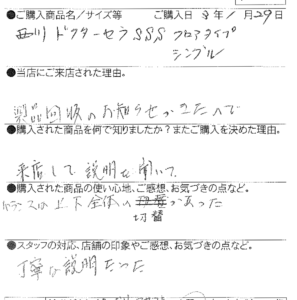 ●ご購入商品名／サイズ等　ご購入日 3年1月29日
西川 ドクターセラ SSS フロアタイプ
シングル
●当店にご来店された理由。
薬品回収のお知らせがきたので
●購入された商品を何で知りましたか？またご購入を決めた理由。
来店して説明を聞いて
●購入された商品の使い心地、ご感想、お気づきの点など。
は上下全体 があった
切替
●スタッフの対応、店舗の印象やご感想、お気づきの点など。
丁寧な説明だった